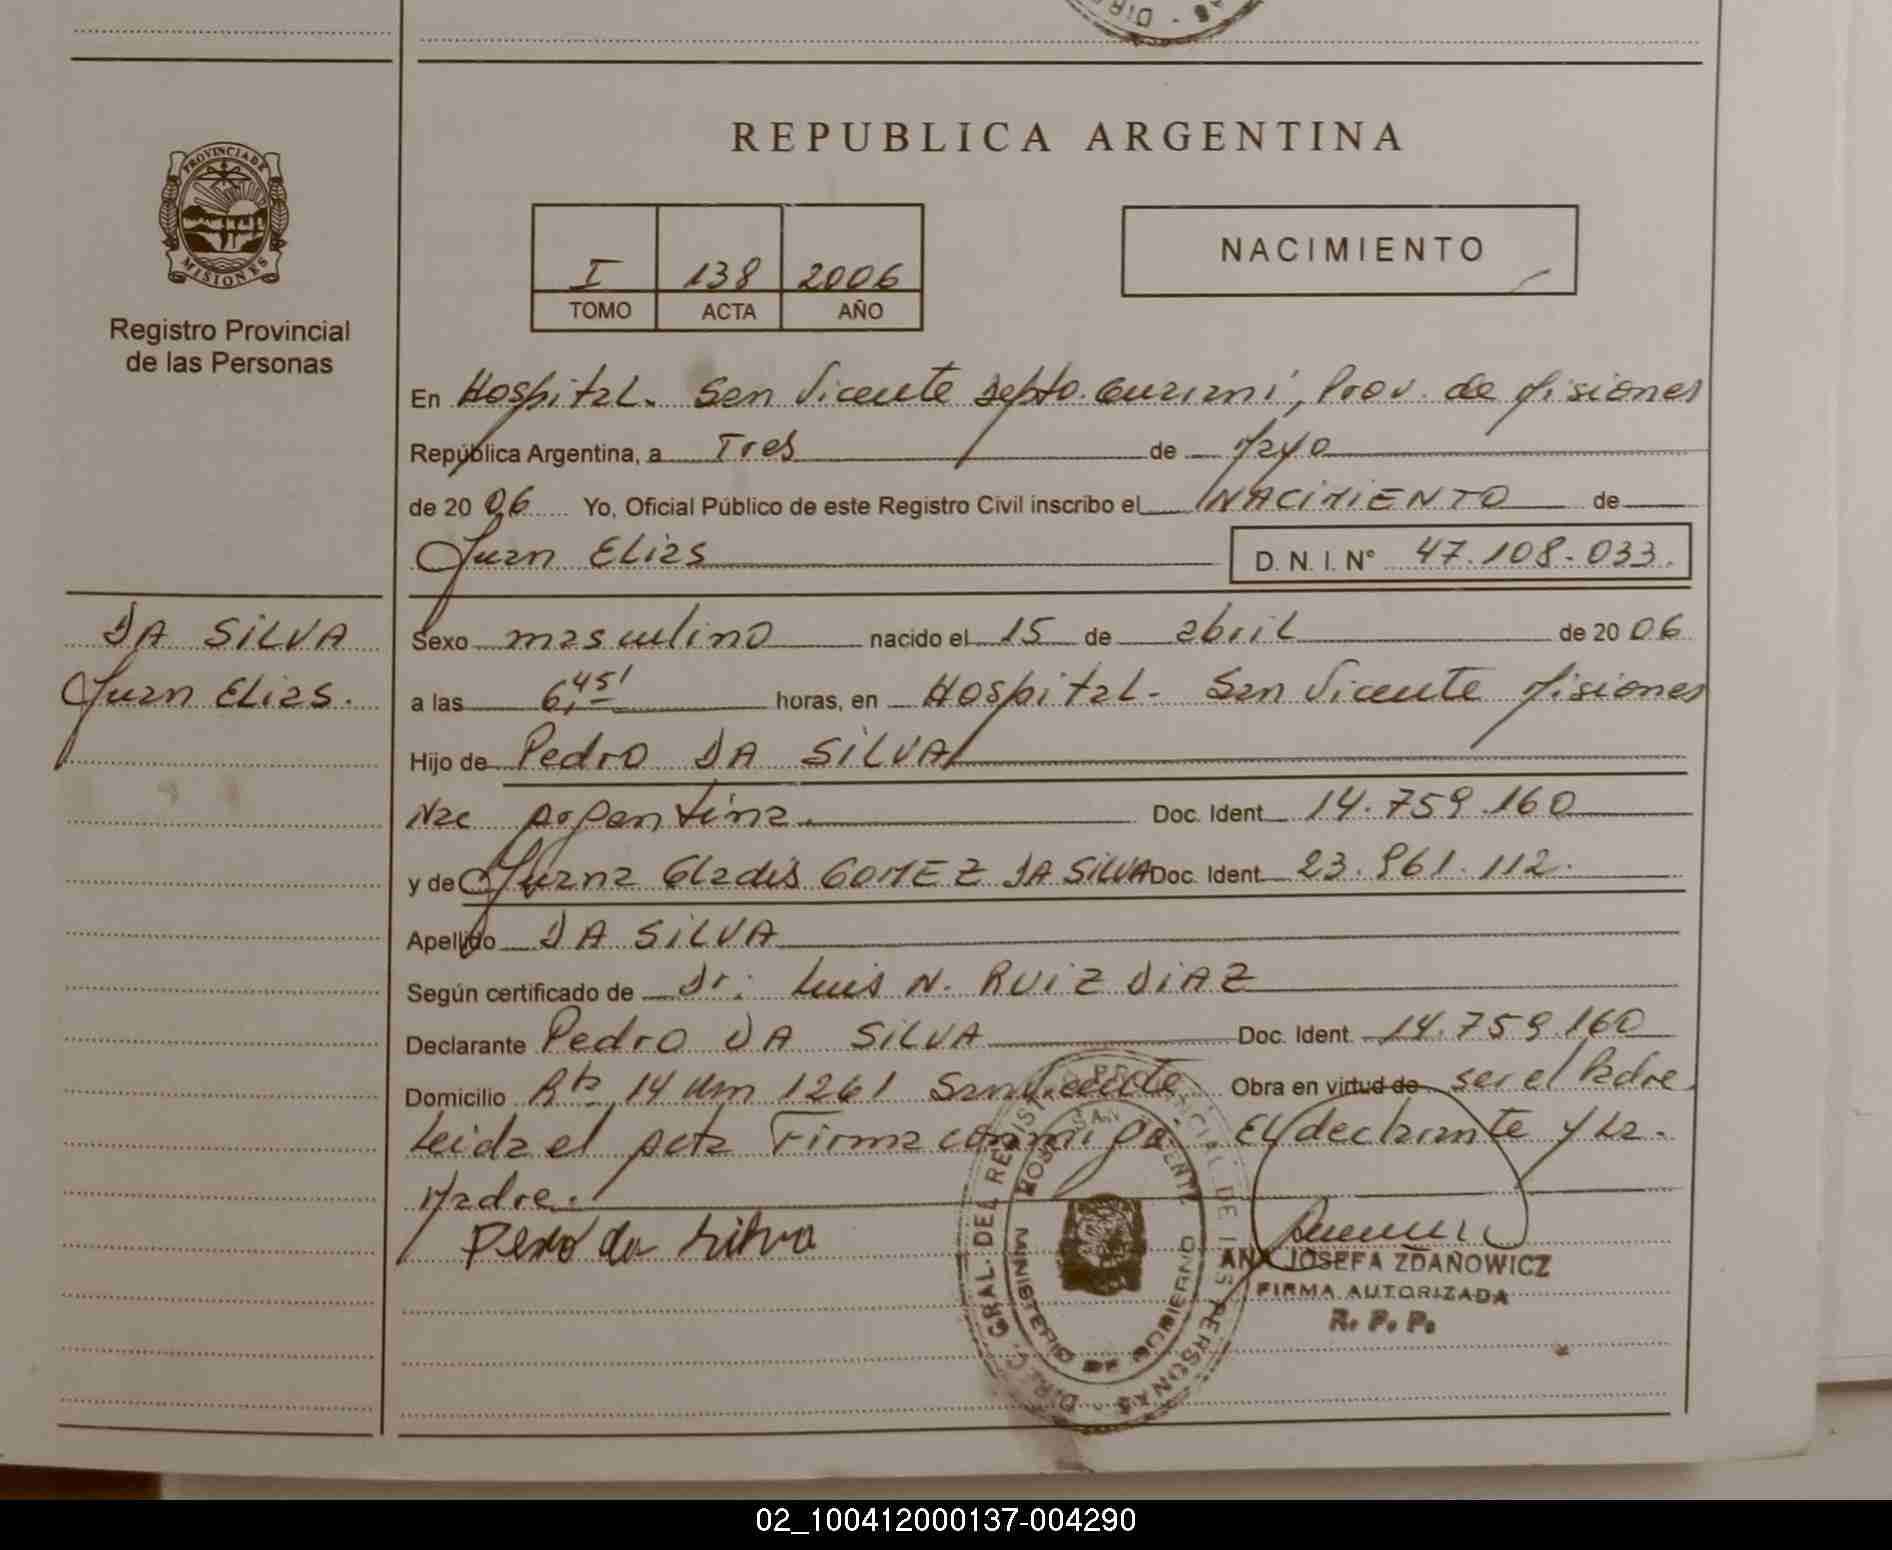 REPUBLICA ARGENTINA
PROVINCIA DE
MISIONES
Registro Provincial
de las Personas
I 138 2006
TOMO ACTA AÑO
NACIMIENTO
En Hospital. San Vicente Depto. Guarani, Prov. de Misiones
República Argentina, a Tres de Mayo
de 2006 Yo, Oficial Público de este Registro Civil inscribo el NACIMIENTO de
Juan Elias D. N. I. N° 47.108.033.
DA SILVA
Juan Elias.
Sexo masculino nacido el 15 de abril de 2006
a las 6,45' horas, en Hospital - San Vicente Misiones
Hijo de Pedro DA SILVA
Nac argentina. Doc. Ident 14.759.160
y de Juana Gladis GOMEZ DA SILVA Doc. Ident 23.861.112.
Apellido DA SILVA
Según certificado de Dr: Luis N. RUIZ DIAZ
Declarante Pedro DA SILVA Doc. Ident. 14.759.160
Domicilio Rta 14 Km 1261 San Vicente Obra en virtud de ser el Padre
Leida el acta Firma conmigo El declarante y La.
Madre.
Pedro da Silva
ANA JOSEFA ZDANOWICZ
FIRMA AUTORIZADA
R. P. P.
DIREC. GRAL. DEL REGISTRO PROVINCIAL DE LAS PERSONAS
HOSP. SAN VICENTE
MINISTERIO DE GOBIERNO
02_100412000137-004290